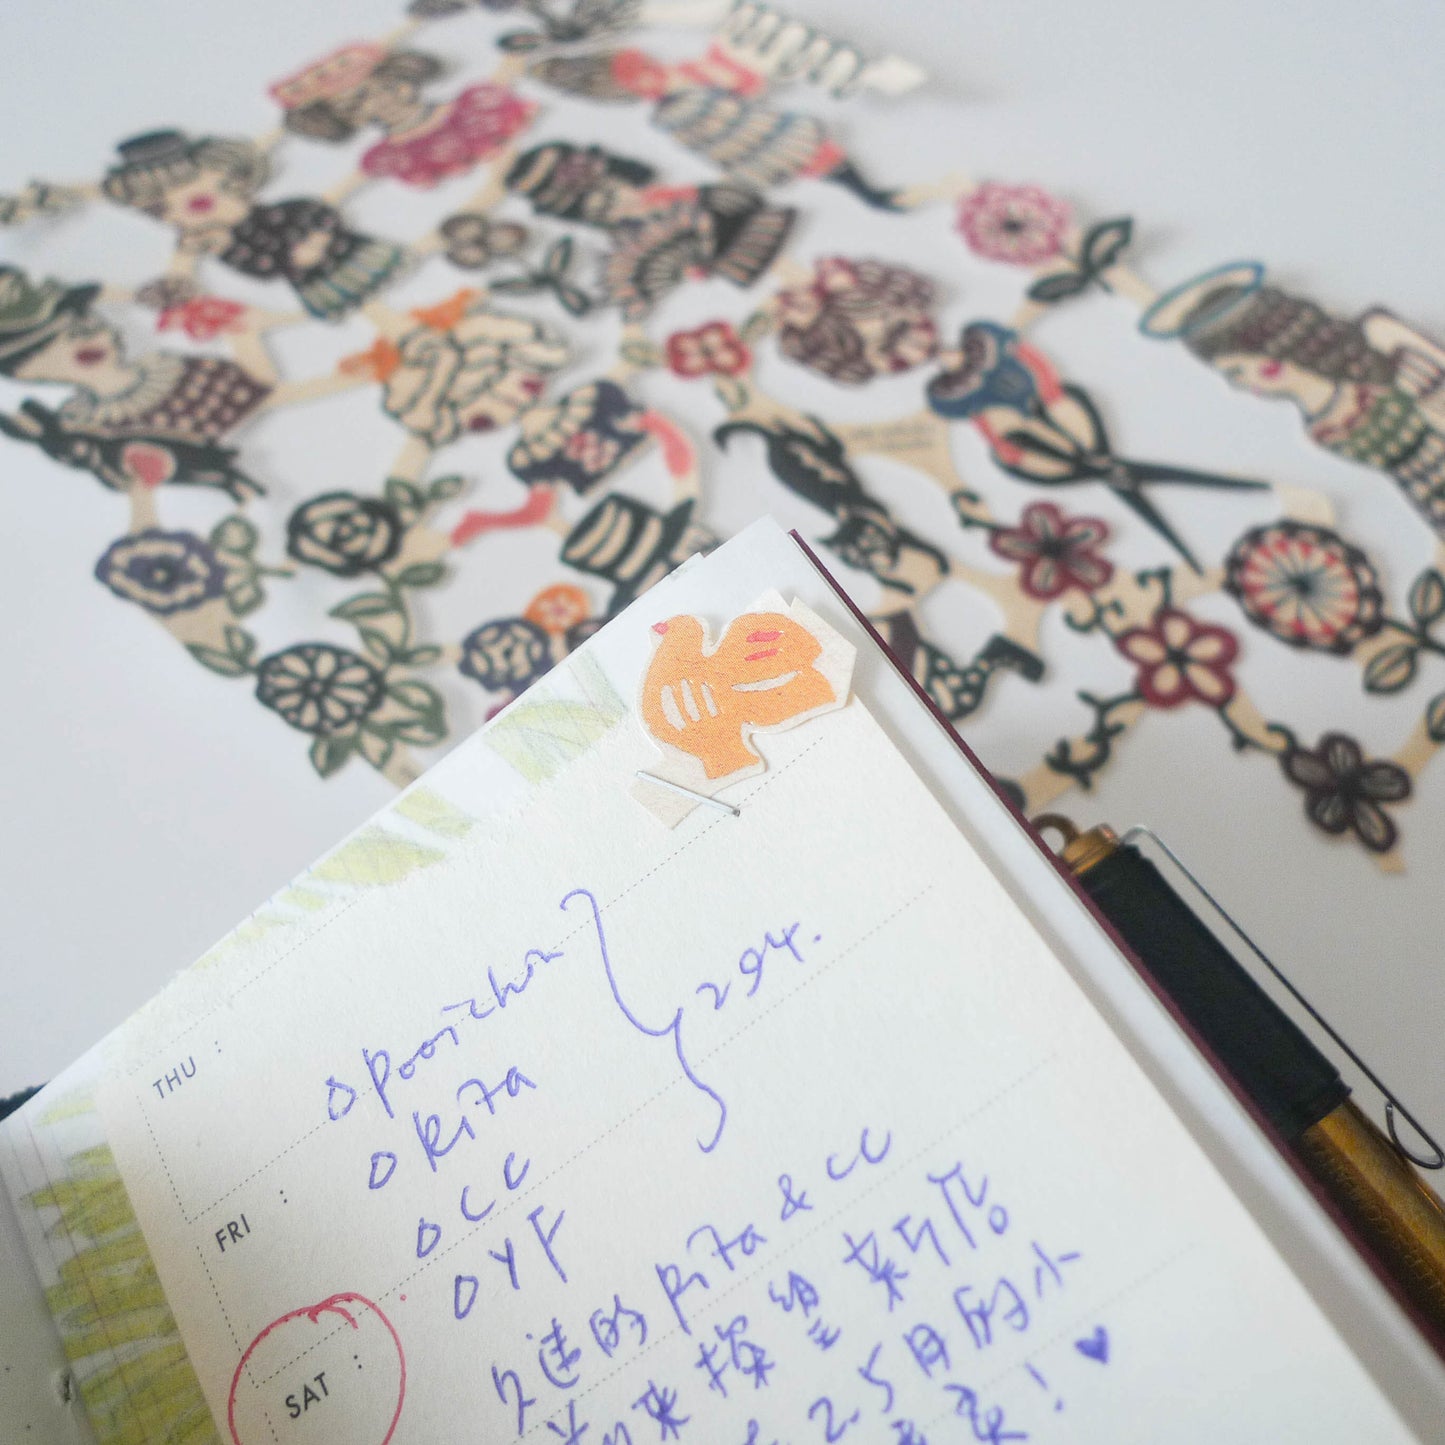 THU :
FRI :
SAT :
poorchon
Rita
CC
YF
294.
久違的 Rita & CC
來探望 新店
2.5月的小
!♥